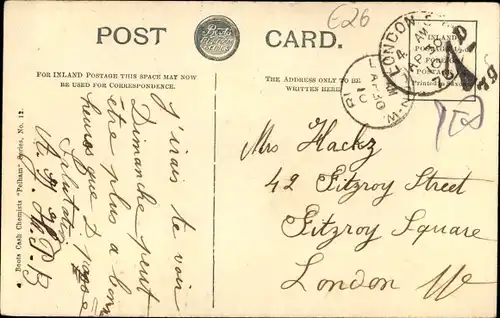 E26
POST
CARD.
FOR INLAND POSTAGE THIS SPACE MAY NOW
BE USED FOR CORRESPONDENCE.
THE ADDRESS ONLY TO BE
WRITTEN HERE.
INLAND
POSTAGE ½d
FOREIGN
POSTAGE
Printed in Saxony
LONDON
W.
AP 30
10
J'irais te voir
Dimanche peut
être plus a bonne
heures que
Salutat
Mrs Hackz
42 Fitzroy Street
Fitzroy Square
London W
Boots Cash Chemists "Pelham" Series, No. 12.